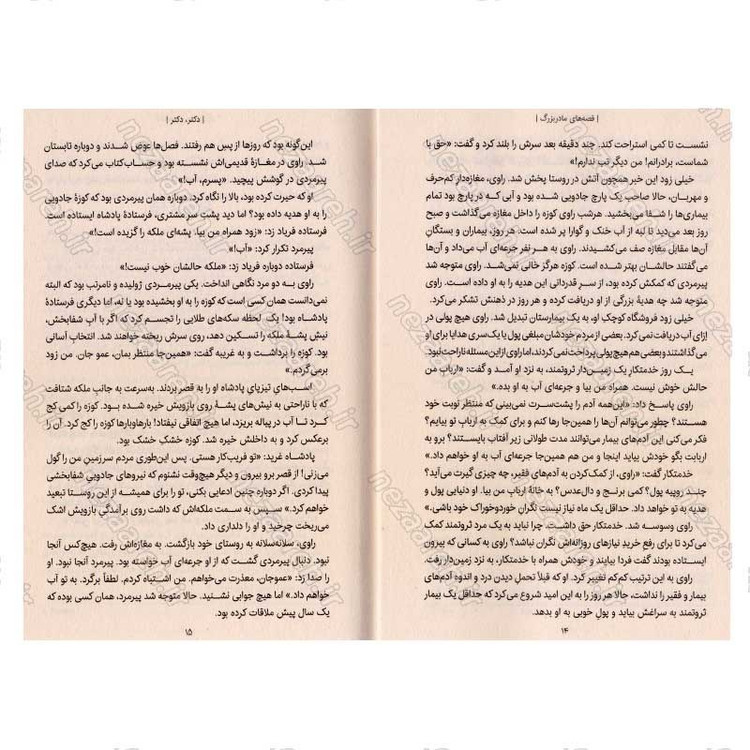 | قصه‌های مادربزرگ |
نشست تا کمی استراحت کند. چند دقیقه بعد سرش را بلند کرد و گفت: «حق با
شماست، برادرانم! من دیگر تب ندارم!»
خیلی زود این خبر همچون آتش در روستا پخش شد. راوی، مغازه‌دار کم‌حرف
و مهربان، حالا صاحب یک پارچ جادویی شده بود و آبی که در پارچ بود تمام
بیماری‌ها را شفا می‌بخشید. هرشب راوی کوزه را داخل مغازه می‌گذاشت و صبح
روز بعد می‌دید تا لبه از آب خنک و گوارا پر شده است. هر روز، بیماران و بستگانِ
آن‌ها مقابل مغازه صف می‌کشیدند. راوی به هر نفر جرعه‌ای آب می‌داد و آن‌ها
می‌گفتند حالشان بهتر شده است. کوزه هرگز خالی نمی‌شد. راوی متوجه شد
پیرمردی که کمکش کرده بود، از سر قدردانی این هدیه را به او داده است.
متوجه شد چه هدیهٔ بزرگی از او دریافت کرده و هر روز در ذهنش تشکر می‌کرد.
خیلی زود فروشگاه کوچکِ او، به یک بیمارستان تبدیل شد. راوی هیچ پولی در
ازای آب دریافت نمی‌کرد. بعضی از مردم خودشان مبلغی پول یا یک‌سری هدایا برای او
می‌گذاشتند و بعضی هم هیچ پولی پرداخت نمی‌کردند، اما راوی از این مسئله ناراحت نبود.
یک روز خدمتکارِ یک زمین‌دار ثروتمند، به نزد او آمد و گفت: «ارباب من
حالش خوش نیست. همراه من بیا و جرعه‌ای آب به او بده.»
راوی پاسخ داد: «این‌همه آدم را پشت‌سرت نمی‌بینی که منتظر نوبت خود
هستند؟ چطور می‌توانم آن‌ها را همین‌جا رها کنم و برای کمک به ارباب تو بیایم؟
فکر می‌کنی این آدم‌های بیمار می‌توانند مدت طولانی زیر آفتاب بایستند؟ برو به
اربابت بگو خودش بیاید اینجا و من هم همین‌جا جرعه‌ای آب به او می‌دهم.»
خدمتکار گفت: «راوی، از کمک‌کردن به آدم‌های فقیر، چه چیزی گیرت می‌آید؟
چند روپیه پول؟ کمی برنج و دال‌عدس؟ به خانهٔ ارباب من بیا. او دنیایی پول و
هدیه به تو خواهد داد. حداقل یک ماه نیاز نیست نگران خوردوخوراک خود باشی.»
راوی وسوسه شد. خدمتکار حق داشت. چرا نباید به یک مرد ثروتمند کمک
می‌کرد تا برای رفع خرید نیازهای روزانه‌اش نگران نباشد؟ راوی به کسانی که بیرون
ایستاده بودند گفت فردا بیایند و خودش همراه با خدمتکار، به نزد زمین‌دار رفت.
راوی به این ترتیب کم‌کم تغییر کرد. او که قبلاً تحمل دیدن درد و اندوه آدم‌های
بیمار و فقیر را نداشت، حالا هر روز را به این امید شروع می‌کرد که حداقل یک بیمار
ثروتمند به سراغش بیاید و پول خوبی به او بدهد.
۱۴
| دکتر، دکتر |
این‌گونه بود که روزها از پسِ هم رفتند. فصل‌ها عوض شدند و دوباره تابستان
شد. راوی در مغازهٔ قدیمی‌اش نشسته بود و حساب‌کتاب می‌کرد که صدای
پیرمردی در گوشش پیچید. «پسرم، آب!»
او که حیرت کرده بود، بالا را نگاه کرد. دوباره همان پیرمردی بود که کوزهٔ جادویی
را به او هدیه داده بود! اما دید پشتِ سر مشتری، فرستادهٔ پادشاه ایستاده است.
فرستاده فریاد زد: «زود همراه من بیا. پشه‌ای ملکه را گزیده است!»
پیرمرد تکرار کرد: «آب!»
فرستاده دوباره فریاد زد: «ملکه حالشان خوب نیست!»
راوی به دو مرد نگاهی انداخت. یکی پیرمردی ژولیده و نامرتب بود که البته
نمی‌دانست همان کسی است که کوزه را به او بخشیده بود یا نه، اما دیگری فرستادهٔ
پادشاه بود! یک لحظه سکه‌های طلایی را تجسم کرد که اگر با آب شفابخش،
نیشِ پشهٔ ملکه را تسکین دهد، روی سرش ریخته خواهند شد. انتخاب آسانی
بود. کوزه را برداشت و به غریبه گفت: «همین‌جا منتظر بمان، عمو جان. من زود
برمی‌گردم.»
اسب‌های تیزپای پادشاه او را به قصر بردند. به‌سرعت به جانب ملکه شتافت
که با ناراحتی به نیش‌های پشهٔ روی بازویش خیره شده بود. کوزه را کمی کج
کرد تا آب در پیاله بریزد، اما هیچ اتفاقی نیفتاد! بارهاوبارها کوزه را کج کرد. آن را
برعکس کرد و به داخلش خیره شد. کوزه خشکِ خشک بود.
پادشاه غرید: «تو فریب‌کار هستی. پس این‌طوری مردم سرزمینِ من را گول
می‌زنی! از قصر برو بیرون و دیگر هیچ‌وقت نشنوم که نیروهای جادویی شفابخشی
پیدا کردی. اگر دوباره چنین ادعایی بکنی، تو را برای همیشه از این روستا تبعید
خواهم کرد.» سپس به سمت ملکه‌اش که داشت روی برآمدگیِ بازویش اشک
می‌ریخت چرخید و او را دلداری داد.
راوی، سلانه‌سلانه به روستای خود بازگشت. به مغازه‌اش رفت. هیچ‌کس آنجا
نبود. دنبال پیرمردی گشت که از او جرعه‌ای آب خواسته بود. پیرمرد آنجا نبود. او
را صدا زد: «عموجان، معذرت می‌خواهم. من اشتباه کردم. لطفاً برگرد. به تو آب
خواهم داد.» اما هیچ جوابی نشنید. حالا متوجه شد پیرمرد، همان کسی بوده که
یک سال پیش ملاقات کرده بود.
۱۵